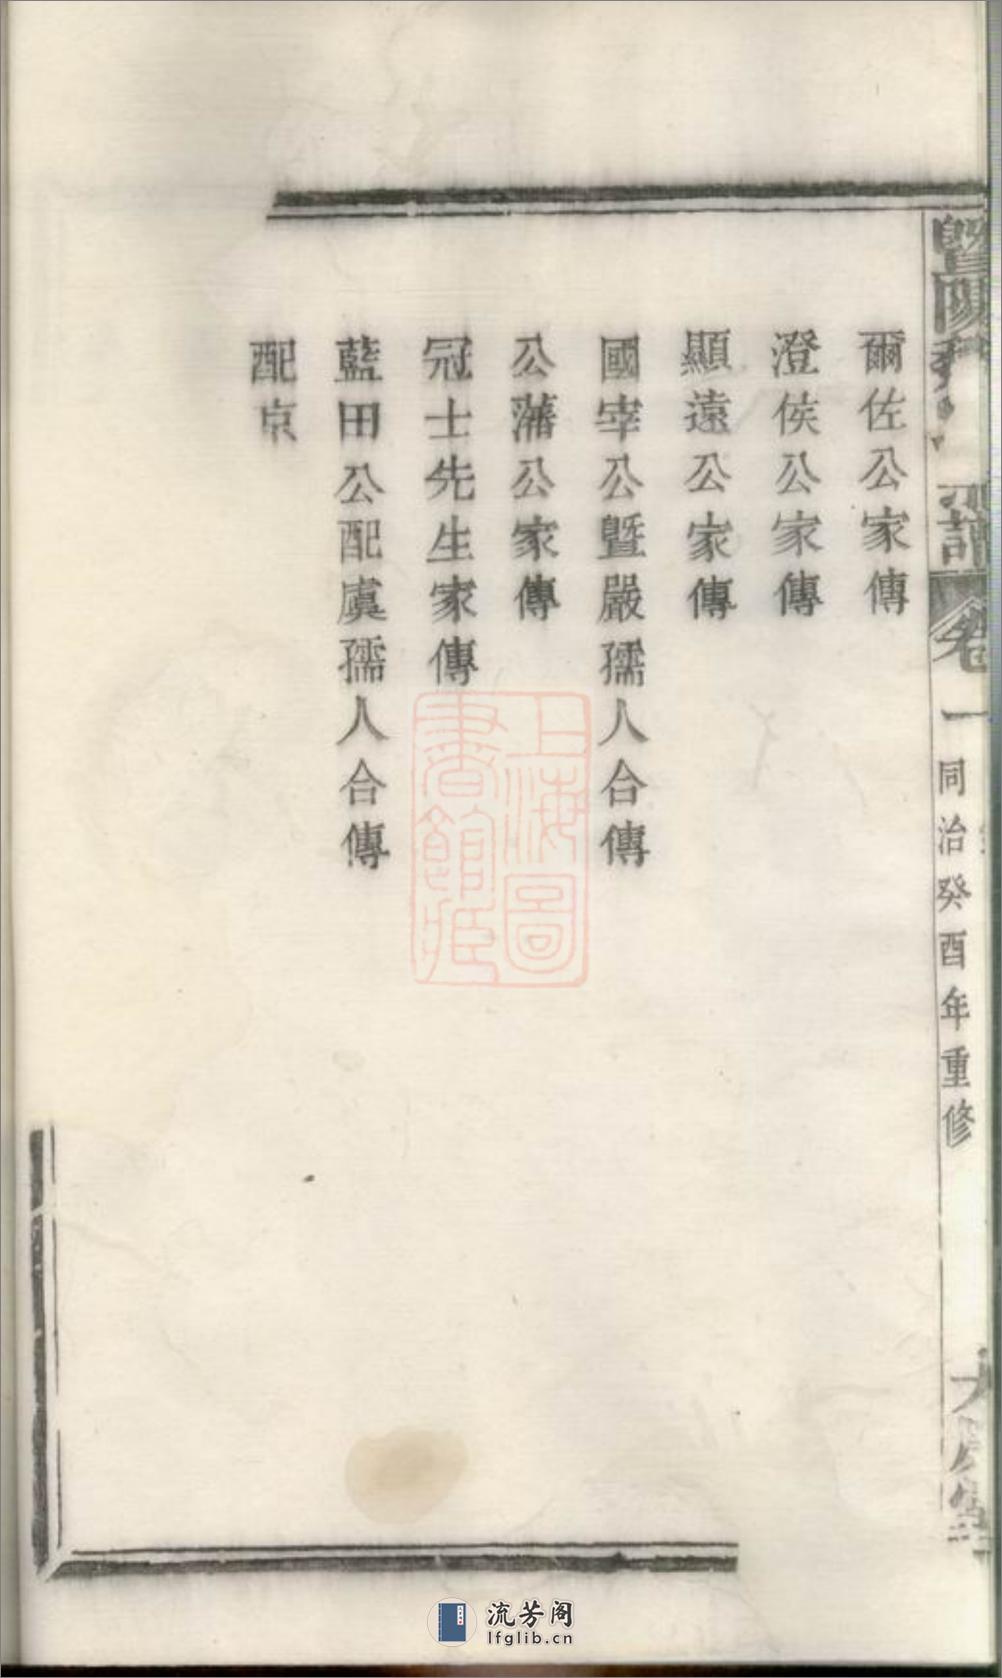 爾佐公家傳
澄侯公家傳
顯遠公家傳
國宰公暨嚴孺人合傳
公藩公家傳
冠士先生家傳
藍田公配虞孺人合傳
配京
暨陽 譜
卷一
同治癸酉年重修
大 堂
上海圖
書館藏
流芳阁
lfglib.cn